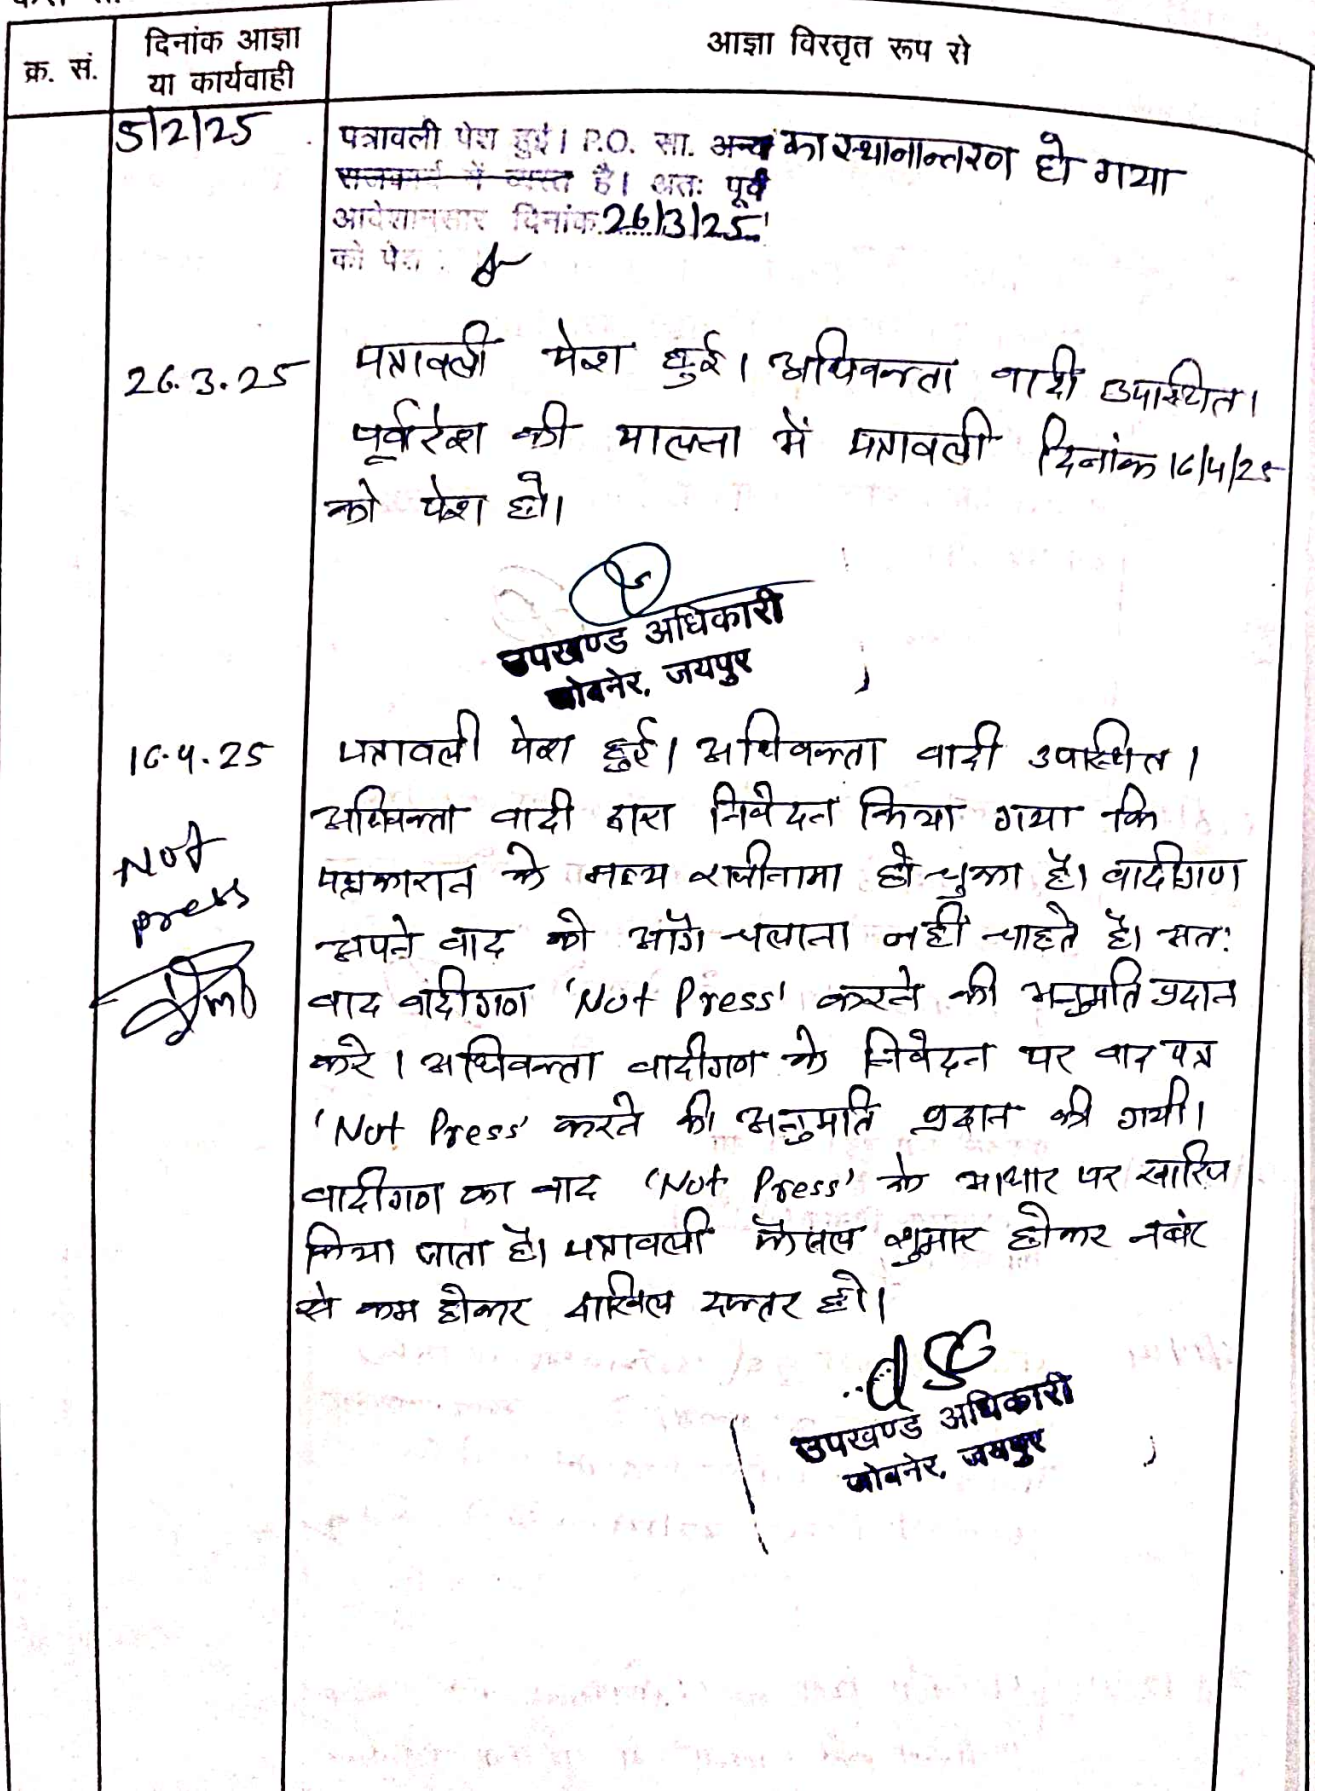 क्र. सं.
दिनांक आज्ञा
या कार्यवाही
आज्ञा विस्तृत रूप से
5/2/25
पत्रावली पेश हुई। P.O. सा. अन्य का स्थानान्तरण हो गया
राजकार्य में व्यस्त है। अतः पूर्व
आदेशानुसार दिनांक 26/3/25
को पेश
26.3.25
पत्रावली पेश हुई। अधिवक्ता वादी उपस्थित।
पूर्वादेश की पालना में पत्रावली दिनांक 16/4/25
को पेश हो।
उपखण्ड अधिकारी
जोबनेर, जयपुर
16.4.25
पत्रावली पेश हुई। अधिवक्ता वादी उपस्थित।
अधिवक्ता वादी द्वारा निवेदन किया गया कि
Not
पक्षकारान के मध्य राजीनामा हो चुका है। वादीगण
press
अपने वाद को आगे चलाना नहीं चाहते है। अतः
वाद वादीगण 'Not Press' करने की अनुमति प्रदान
करे। अधिवक्ता वादीगण के निवेदन पर वाद पत्र
'Not Press' करने की अनुमति प्रदान की गयी।
वादीगण का वाद 'Not Press' के आधार पर खारिज
किया जाता है। पत्रावली फैसल शुमार होकर नंबर
से कम होकर दाखिल दफ्तर हो।
उपखण्ड अधिकारी
जोबनेर, जयपुर